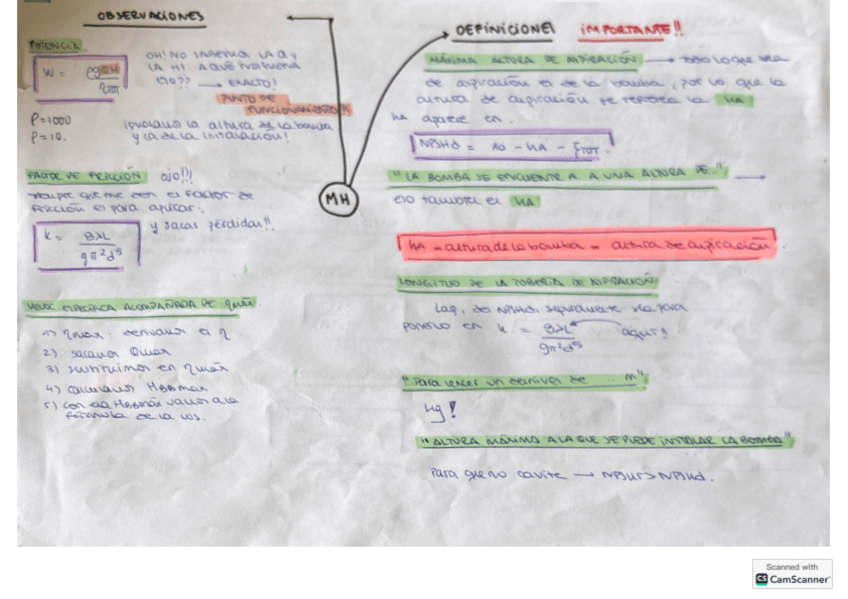 OBSERVACIONES
POTENCIA
W = ρgQH / ηTOT
OH! NO tenemos la Q y
la H! A qué
eso?? → EXACTO!
PUNTO DE
FUNCIONAMIENTO!!
ρ=1000
ρ=10.
igualamos la altura de la bomba
y la de la instalación!
FACTOR DE FRICCIÓN ojo!!!
siempre que me den el factor de
fricción es para aplicar.
k = 8λL / gπ²d⁵
y sacar pérdidas!!
VELOC. ESPECÍFICA ACOMPAÑADA DE ηmáx.
1) ηmax: derivamos el η
2) sacamos Qmax
3) sustituimos en ηmáx
4) calculamos HBBmax
5) con esa HBBmáx vamos a la
fórmula de la ws.
MH
DEFINICIONES ¡IMPORTANTE!!
MÁXIMA ALTURA DE ASPIRACIÓN → todo lo que sea
de aspiración es de la bomba, por lo que la
altura de aspiración se refiere a la HA
HA aparece en.
NPSHd = 10 - HA - ξTOT.
"LA BOMBA SE ENCUENTRA A UNA ALTURA DE..." →
eso también es HA
HA = altura de la bomba = altura de aspiración
LONGITUD DE LA TUBERÍA DE ASPIRACIÓN
Lasp, del NPSHd, simplemente sea para
ponerlo en k = 8λL / gπ²d⁵ aquí!!
"Para vencer un desnivel de ... m"
Hg!
"ALTURA MÁXIMA A LA QUE SE PUEDE INSTALAR LA BOMBA"
Para que no cavite → NPSHr>NPSHd.
Scanned with
CS CamScanner